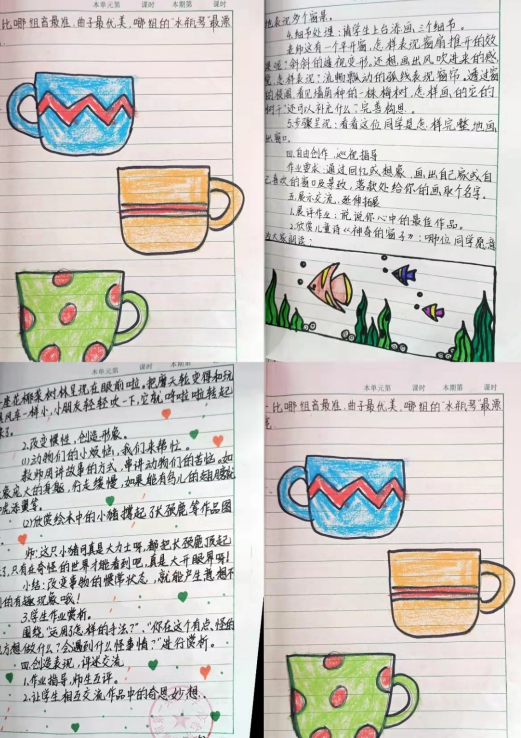 本单元第 课时 本期第
比哪组音最准、曲子最优美,哪组的“水瓶号”最漂
地表现多个窗景。
4.细节处理:请学生上台添画三个细节。
老师这有一个平开窗,怎样表现窗扇推开的效
果呢?斜斜的透视变形,还想画出风吹进来的感
觉,怎样表现?流畅飘动的弧线表现窗帘。透过窗
看见墙角种的一株梅树,怎样画的它的
树干”还可以补充什么?完善构思。
5.步骤呈现:看看这位同学是怎样完整地画
出窗口。
四.自由创作,巡视指导
作业要求:通过回忆或想象,画出自己家或自
己喜欢的窗口及景致,落款处给你的画取个名字。
五.展示交流,延伸拓展
1.展评作业:说说你心中的最佳作品。
2.欣赏儿童诗《神奇的窗子》:哪位同学愿意
给大家朗读:
本单元第 课时 本期第 课时
座花椰菜树林呈现在眼前啦。把摩天轮变得和玩
具风车一样小,小朋友轻轻吹一下,它就呼啦啦转起
来了。
2.改变惯性,创造形象。
(1)动物们的小烦恼,我们来帮忙。
教师用讲故事的方式,串讲动物们的苦恼。如
大象庞大的身躯,行走缓慢,如果能有鸟儿的翅膀
(2)欣赏绘本中的小猪撑起了长颈鹿等作品图
师:这只小猪可真是大力士呀,都把长颈鹿顶起
了,只有在奇怪的世界才能看到吧,真是大开眼界呀!
小结:改变事物的惯常状态,就能产生意想不
到的有趣现象哦!
3.学生作业赏析。
围绕“运用了怎样的手法?”、“你在这个有点怪的
地方想做什么?会遇到什么怪事情?”进行赏析。
四.创造表现,评述交流
1.作业指导,师生互评。
2.让学生相互交流作品中的奇思妙想。
本单元第 课时 本期第 课时
比哪组音最准、曲子最优美,哪组的“水瓶号”最漂
亮。